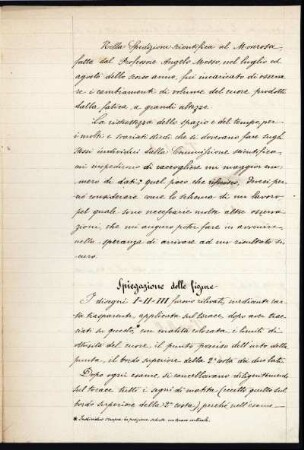 Nella Spedizione scientifica al Monrosa
fatta dal Professore Angelo Mosso, nel luglio ed
agosto dello scorso anno, fui incaricato di osserva-
re i cambiamenti di volume del cuore prodotti
dalla fatica a grandi altezze.
La ristrettezza dello spazio e del tempo per i
molti e svariati studi che si dovevano fare sugli
stessi individui dalla Commissione scientifica
mi impedirono di raccogliere un maggior nu-
mero di dati: quel poco che devesi pe-
rò considerare come lo schema di un lavoro
pel quale sono necessarie molte altre osserva-
zioni, che mi auguro poter fare in avvenire
nella speranza di arrivare ad un risultato si-
curo.
Spiegazione delle figure
I disegni I-II-III furono rilevati, mediante carta
trasparente, applicata sul torace, dopo aver trac-
ciati su questo, con matita colorata, i limiti di
ottusità del cuore, il punto preciso dell'urto della
punta, il bordo superiore della 2ª costa dei due lati.
Dopo ogni esame, si cancellavano diligentemente
sul torace tutti i segni di matita (eccetto quello sul
bordo superiore della 2ª costa), perchè nell'esame